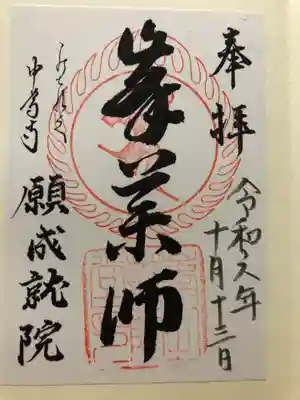 奉拝
令和元年
十月十三日
峯薬師
中尊寺
願成就院